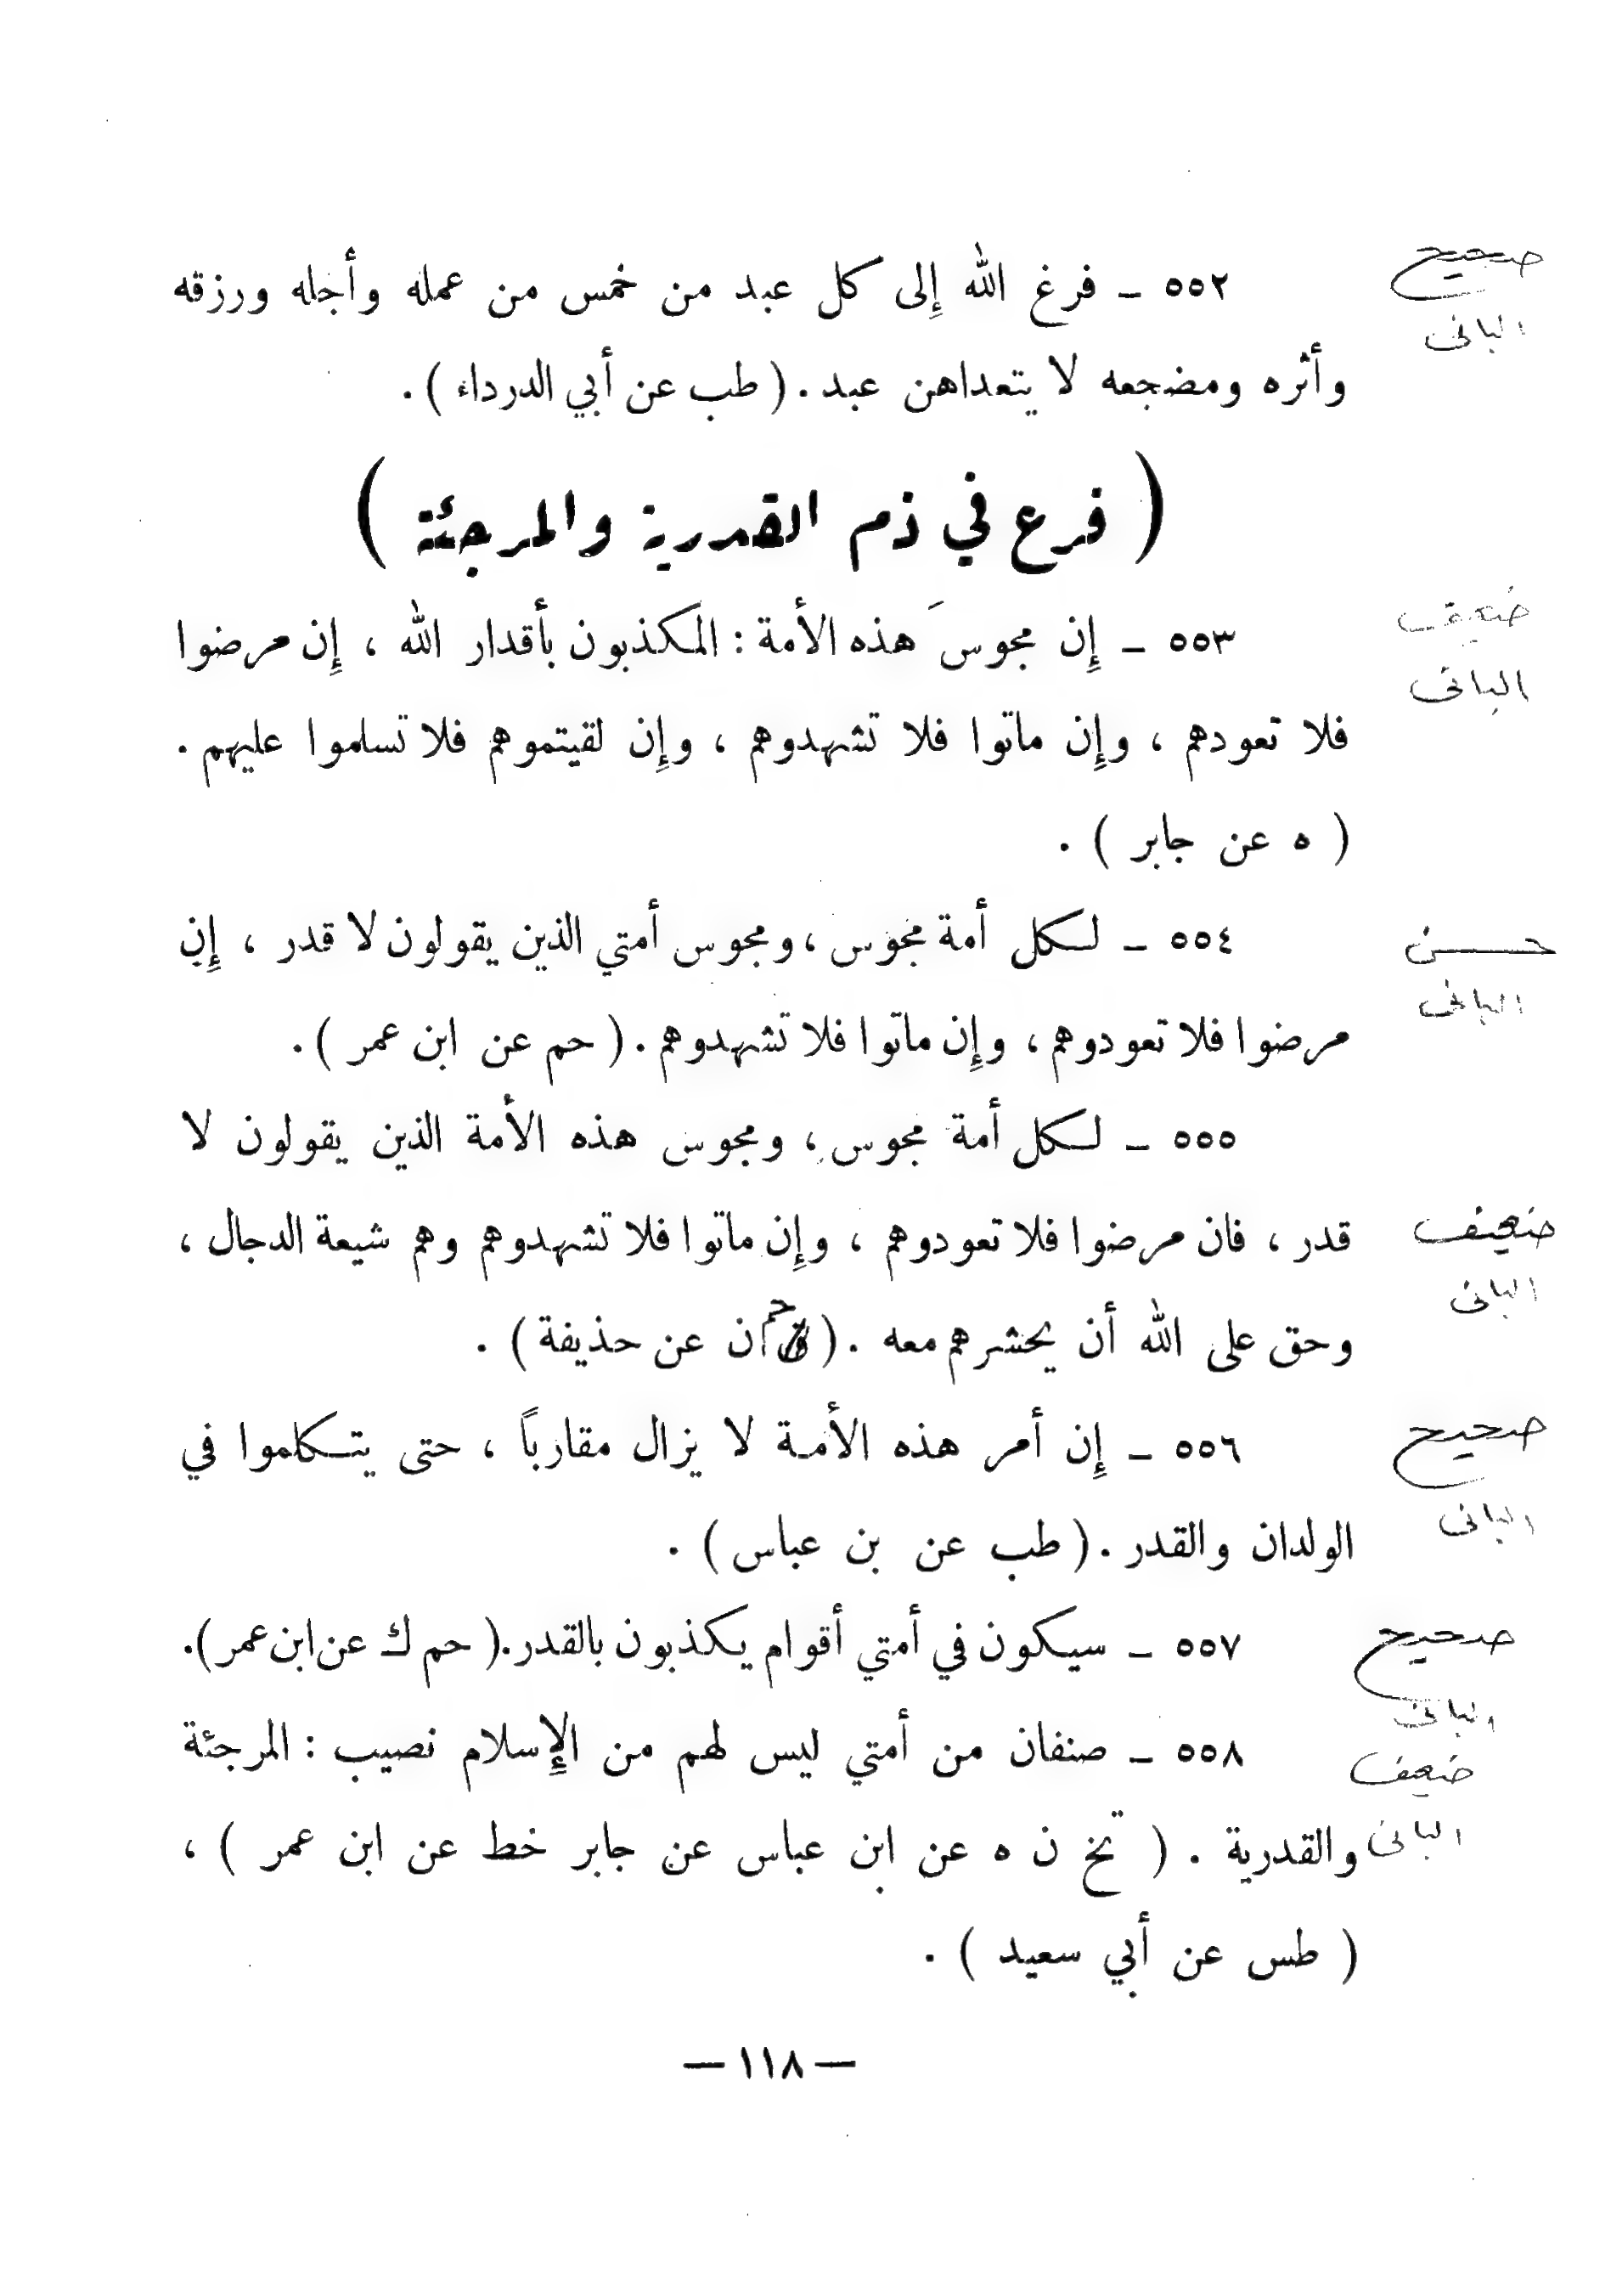 صحيح
البانى
٥٥٢ ـ فرغ الله إِلى كل عبد من خمس من عمله وأجله ورزقه
وأثره ومضجعه لا يتعداهن عبد . ( طب عن أبي الدرداء ) .
( فرع في ذم القدرية والمرجئة )
ضعيف
البانى
٥٥٣ ـ إِن مجوسَ هذه الأمة : المكذبون بأقدار الله ، إِن مرضوا
فلا تعودهم ، وإِن ماتوا فلا تشهدوهم ، وإِن لقيتموهم فلا تسلموا عليهم .
( ه عن جابر ) .
حسن
البانى
٥٥٤ ـ لكل أمة مجوس ، ومجوس أمتي الذين يقولون لا قدر ، إِن
مرضوا فلا تعودوهم ، وإِن ماتوا فلا تشهدوهم . ( حم عن ابن عمر ) .
٥٥٥ ـ لكل أمة مجوس ، ومجوس هذه الأمة الذين يقولون لا
ضعيف
البانى
قدر ، فان مرضوا فلا تعودوهم ، وإِن ماتوا فلا تشهدوهم وهم شيعة الدجال ،
وحق على الله أن يحشرهم معه . ( حم ن عن حذيفة ) .
صحيح
البانى
٥٥٦ ـ إِن أمر هذه الأمة لا يزال مقارباً ، حتى يتكلموا في
الولدان والقدر . ( طب عن بن عباس ) .
صحيح
البانى
٥٥٧ ـ سيكون في أمتي أقوام يكذبون بالقدر. ( حم ك عن ابن عمر ) .
ضعيف
البانى
٥٥٨ ـ صنفان من أمتي ليس لهم من الإِسلام نصيب : المرجئة
والقدرية . ( تخ ن ه عن ابن عباس عن جابر خط عن ابن عمر ) ،
( طس عن أبي سعيد ) .
— ١١٨ —